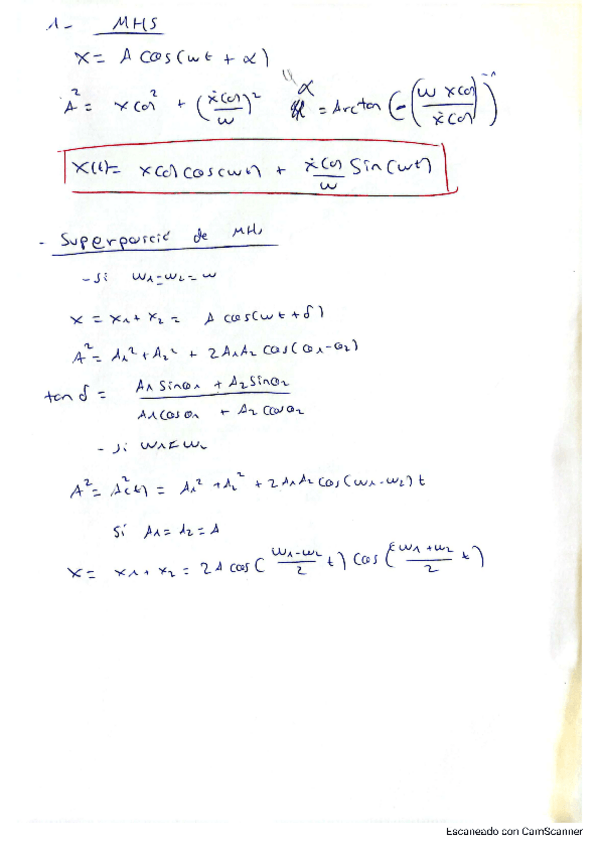 1- MHS
x = A cos(wt + α)
A² = x(0)² + (ẋ(0)/w)² α = Arctan (-(w x(0)/ẋ(0))⁻¹)
x(t) = x(0) cos(wt) + ẋ(0)/w Sin(wt)
- Superposició de MHS
- Si w1 = w2 = w
x = x1 + x2 = A cos(wt + δ)
A² = A1² + A2² + 2A1A2 cos(θ1-θ2)
tan δ = A1 Sinθ1 + A2 Sinθ2 / A1 cosθ1 + A2 cosθ2
A² = A²(t) = A1² + A2² + 2A1A2 cos(w1-w2)t
Si A1 = A2 = A
x = x1 + x2 = 2A cos( w1-w2/2 t) cos( w1+w2/2 t)
Escaneado con CamScanner